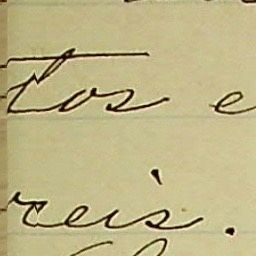 tos e
reis.